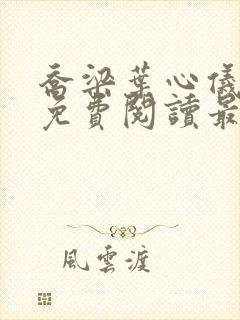 喬梁葉心儀
免費閱讀最
風雲渡